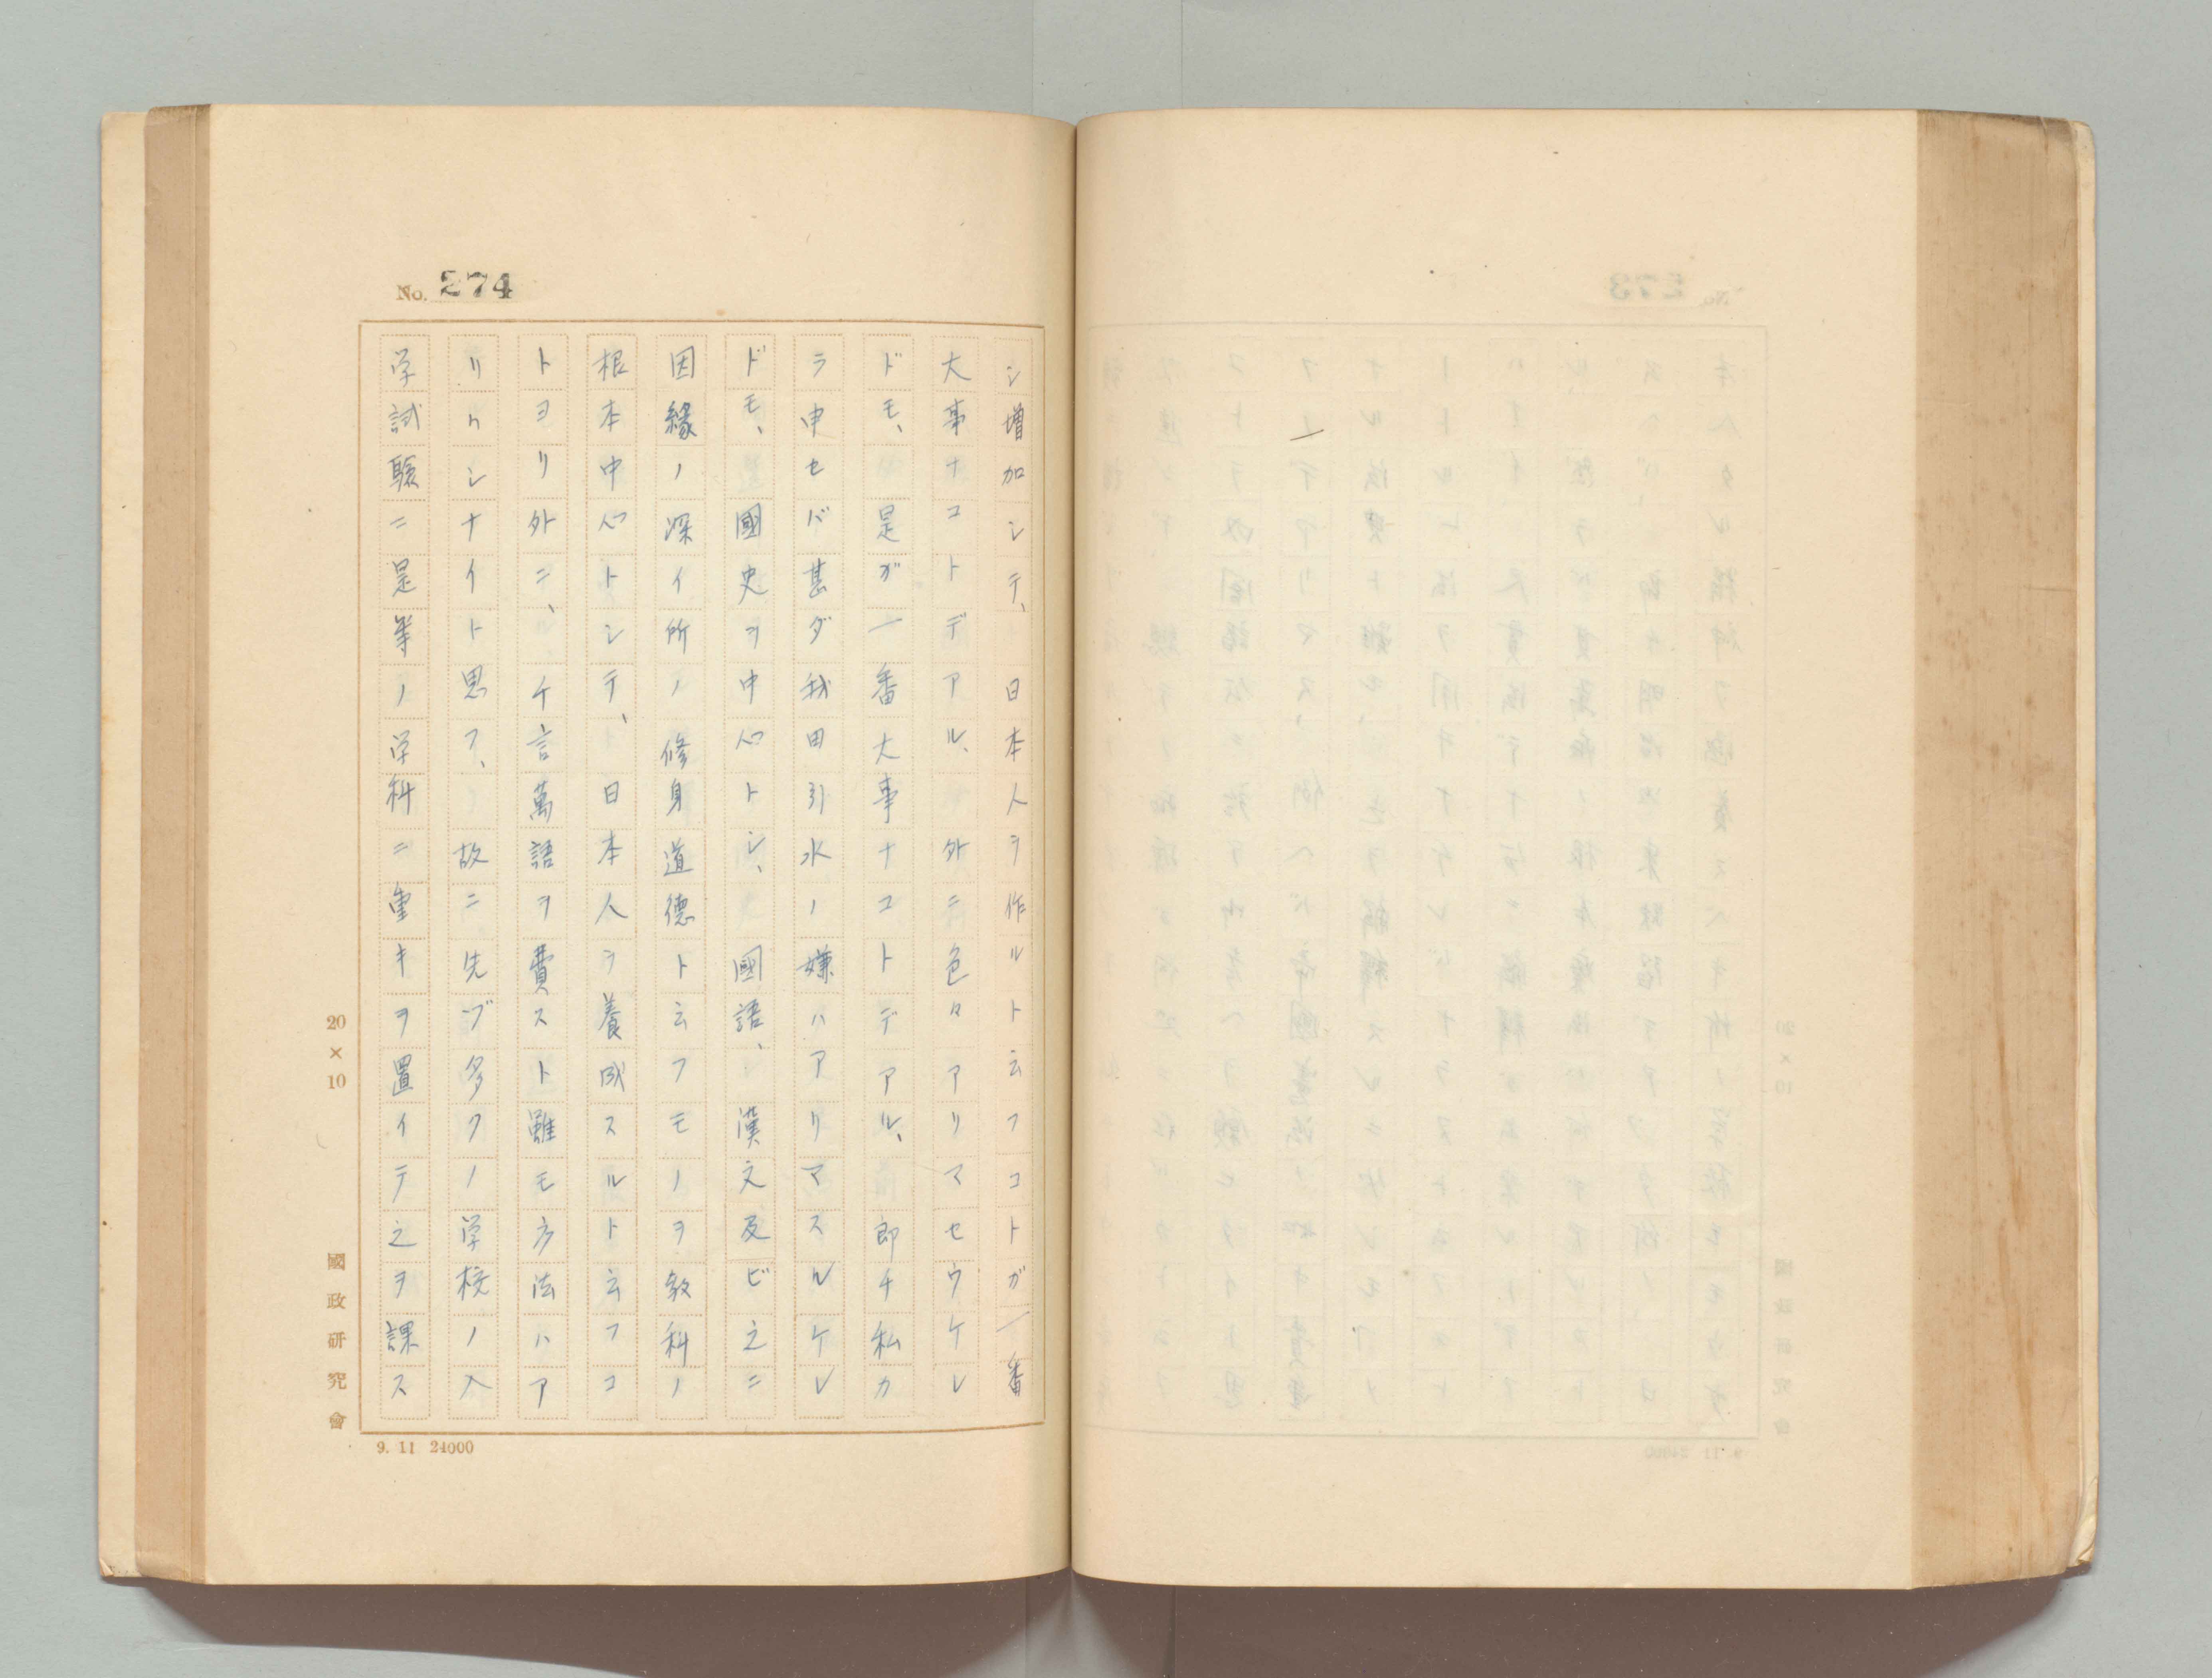 No. 274
シ増加シテ、日本人ヲ作ルト云フコトガ一番
大事ナコトデアル、外ニ色々アリマセウケレ
ドモ、是ガ一番大事ナコトデアル、即チ私カ
ラ申セバ甚ダ我田引水ノ嫌ハアリマスルケレ
ドモ、國史ヲ中心トシ、國語、漢文及ビ之ニ
因緣ノ深イ所ノ修身道德ト云フモノヲ教科ノ
根本中心トシテ、日本人ヲ養成スルト云フコ
トヨリ外ニ、千言萬語ヲ費スト雖モ方法ハア
リハシナイト思フ、故ニ先ヅ多クノ学校ノ入
学試驗ニ是等ノ学科ニ重キヲ置イテ之ヲ課ス
20×10
國政研究會
9. 11 24000